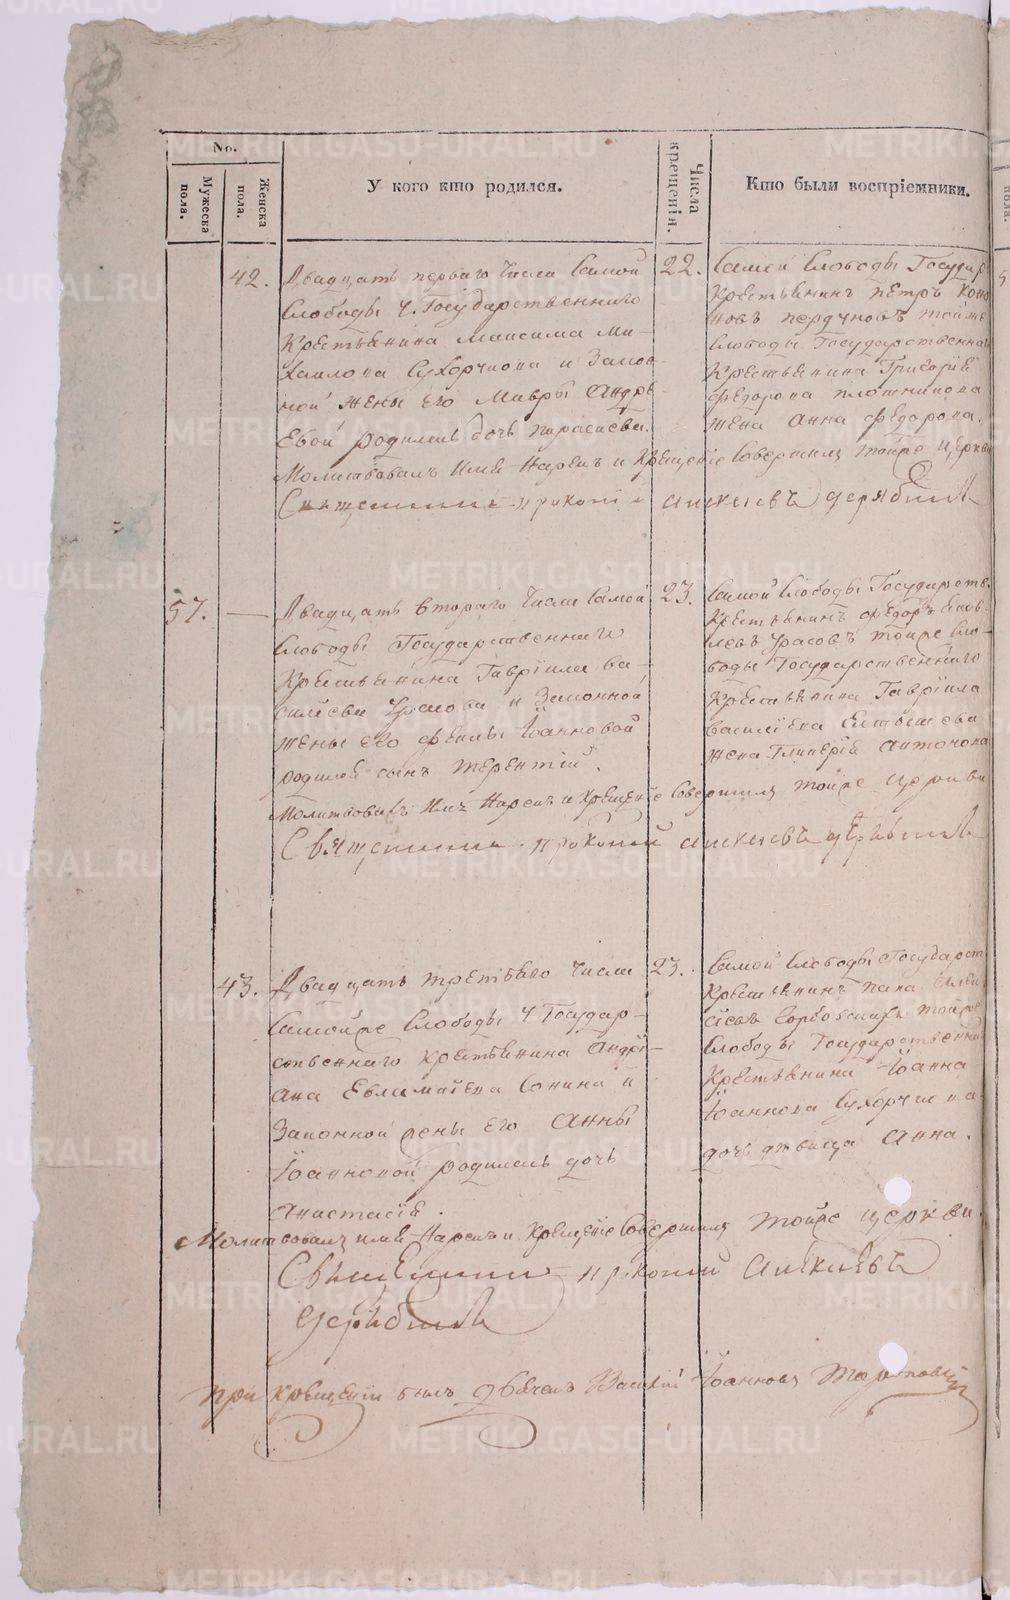 No.
Мужеска пола.
Женска пола.
У кого кто родился.
Числа крещенія.
Кто были воспріемники.
42.
Двадцать перваго числа Самой
Слободы у Государственнаго
Крестьянина Максима Ми-
хаилова Сухорчкова и закон-
ной жены его Мавры Андре-
евой родилась дочь Параскева.
22.
Самой Слободы Государ
Крестьянинъ Петръ Коно
новъ тойже
Слободы Государственнаго
Крестьянина Григорія
Федорова Плотникова
жена Анна Федорова.
Молитвовалъ имя нарекъ и крещеніе совершилъ тойже церкви
Священникъ Прокопій Алексіевъ Дерябинъ
57.
Двадцать втораго числа Самой
Слободы Государственнаго
Крестьянина Гавріила Ва-
силіева и законной
жены его Феклы Іоанновой
родился сынъ Терентій.
23.
Самой Слободы Государств.
Крестьянинъ Федоръ Яков-
левъ тойже Сло-
боды Государственнаго
Крестьянина Гавріила
Василіева
жена Гликерія Антонова
Молитвовалъ имя нарекъ и крещеніе совершилъ тойже церкви
Священникъ Прокопій Алексіевъ Дерябинъ
43.
Двадцать третьяго числа
Самойже Слободы у Государ-
ственнаго крестьянина Андрі-
ана Евлампіева Сонина и
законной жены его Анны
Іоанновой родилась дочь
Анастасія.
23.
Самой Слободы Государст
Крестьянинъ
тойже
Слободы Государственнаго
Крестьянина Іоанна
Іоаннова Сухорчкова
дочь девица Анна.
Молитвовалъ имя нарекъ и крещеніе совершилъ тойже церкви
Священникъ Прокопій Алексіевъ
Дерябинъ
При крещеніи былъ дьячекъ Василій Іоанновъ
METRIKI.GASO-URAL.RU